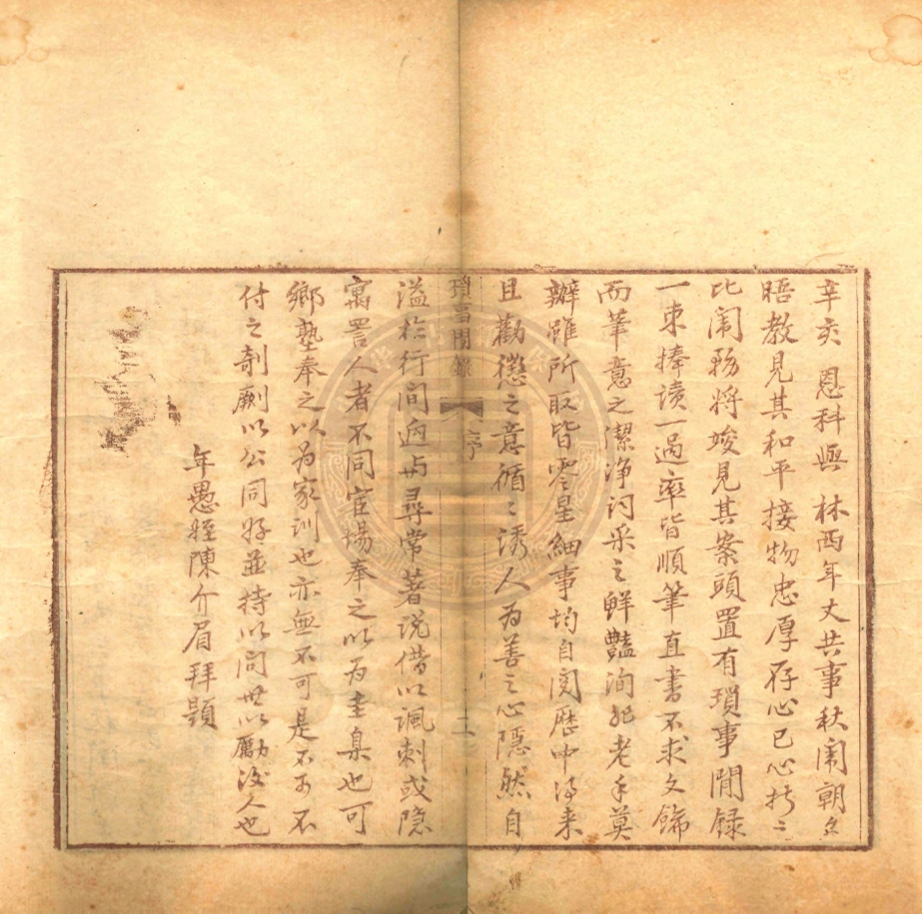 辛亥 恩科與 林西年丈共事秋闱朝夕
晤教見其和平接物忠厚存心已心折〻
比闱務將竣見其案頭置有瑣事閒録
一束捧讀一過率皆順筆直書不求文餙
而筆意之潔净词采之鮮豔洵非老手莫
辦雖所取皆零星細事均自閱歷中得来
且勸懲之意循〻诱人为善之心隐然自
瑣事閒錄
序
二
溢於行間迥与尋常著说借以諷刺或隐
寓詈人者不同宦場奉之以为圭臬也可
鄉塾奉之以为家训也亦無不可是不可不
付之剞劂以公同好並持以问世以勵後人也
年愚姪陳介眉拜題